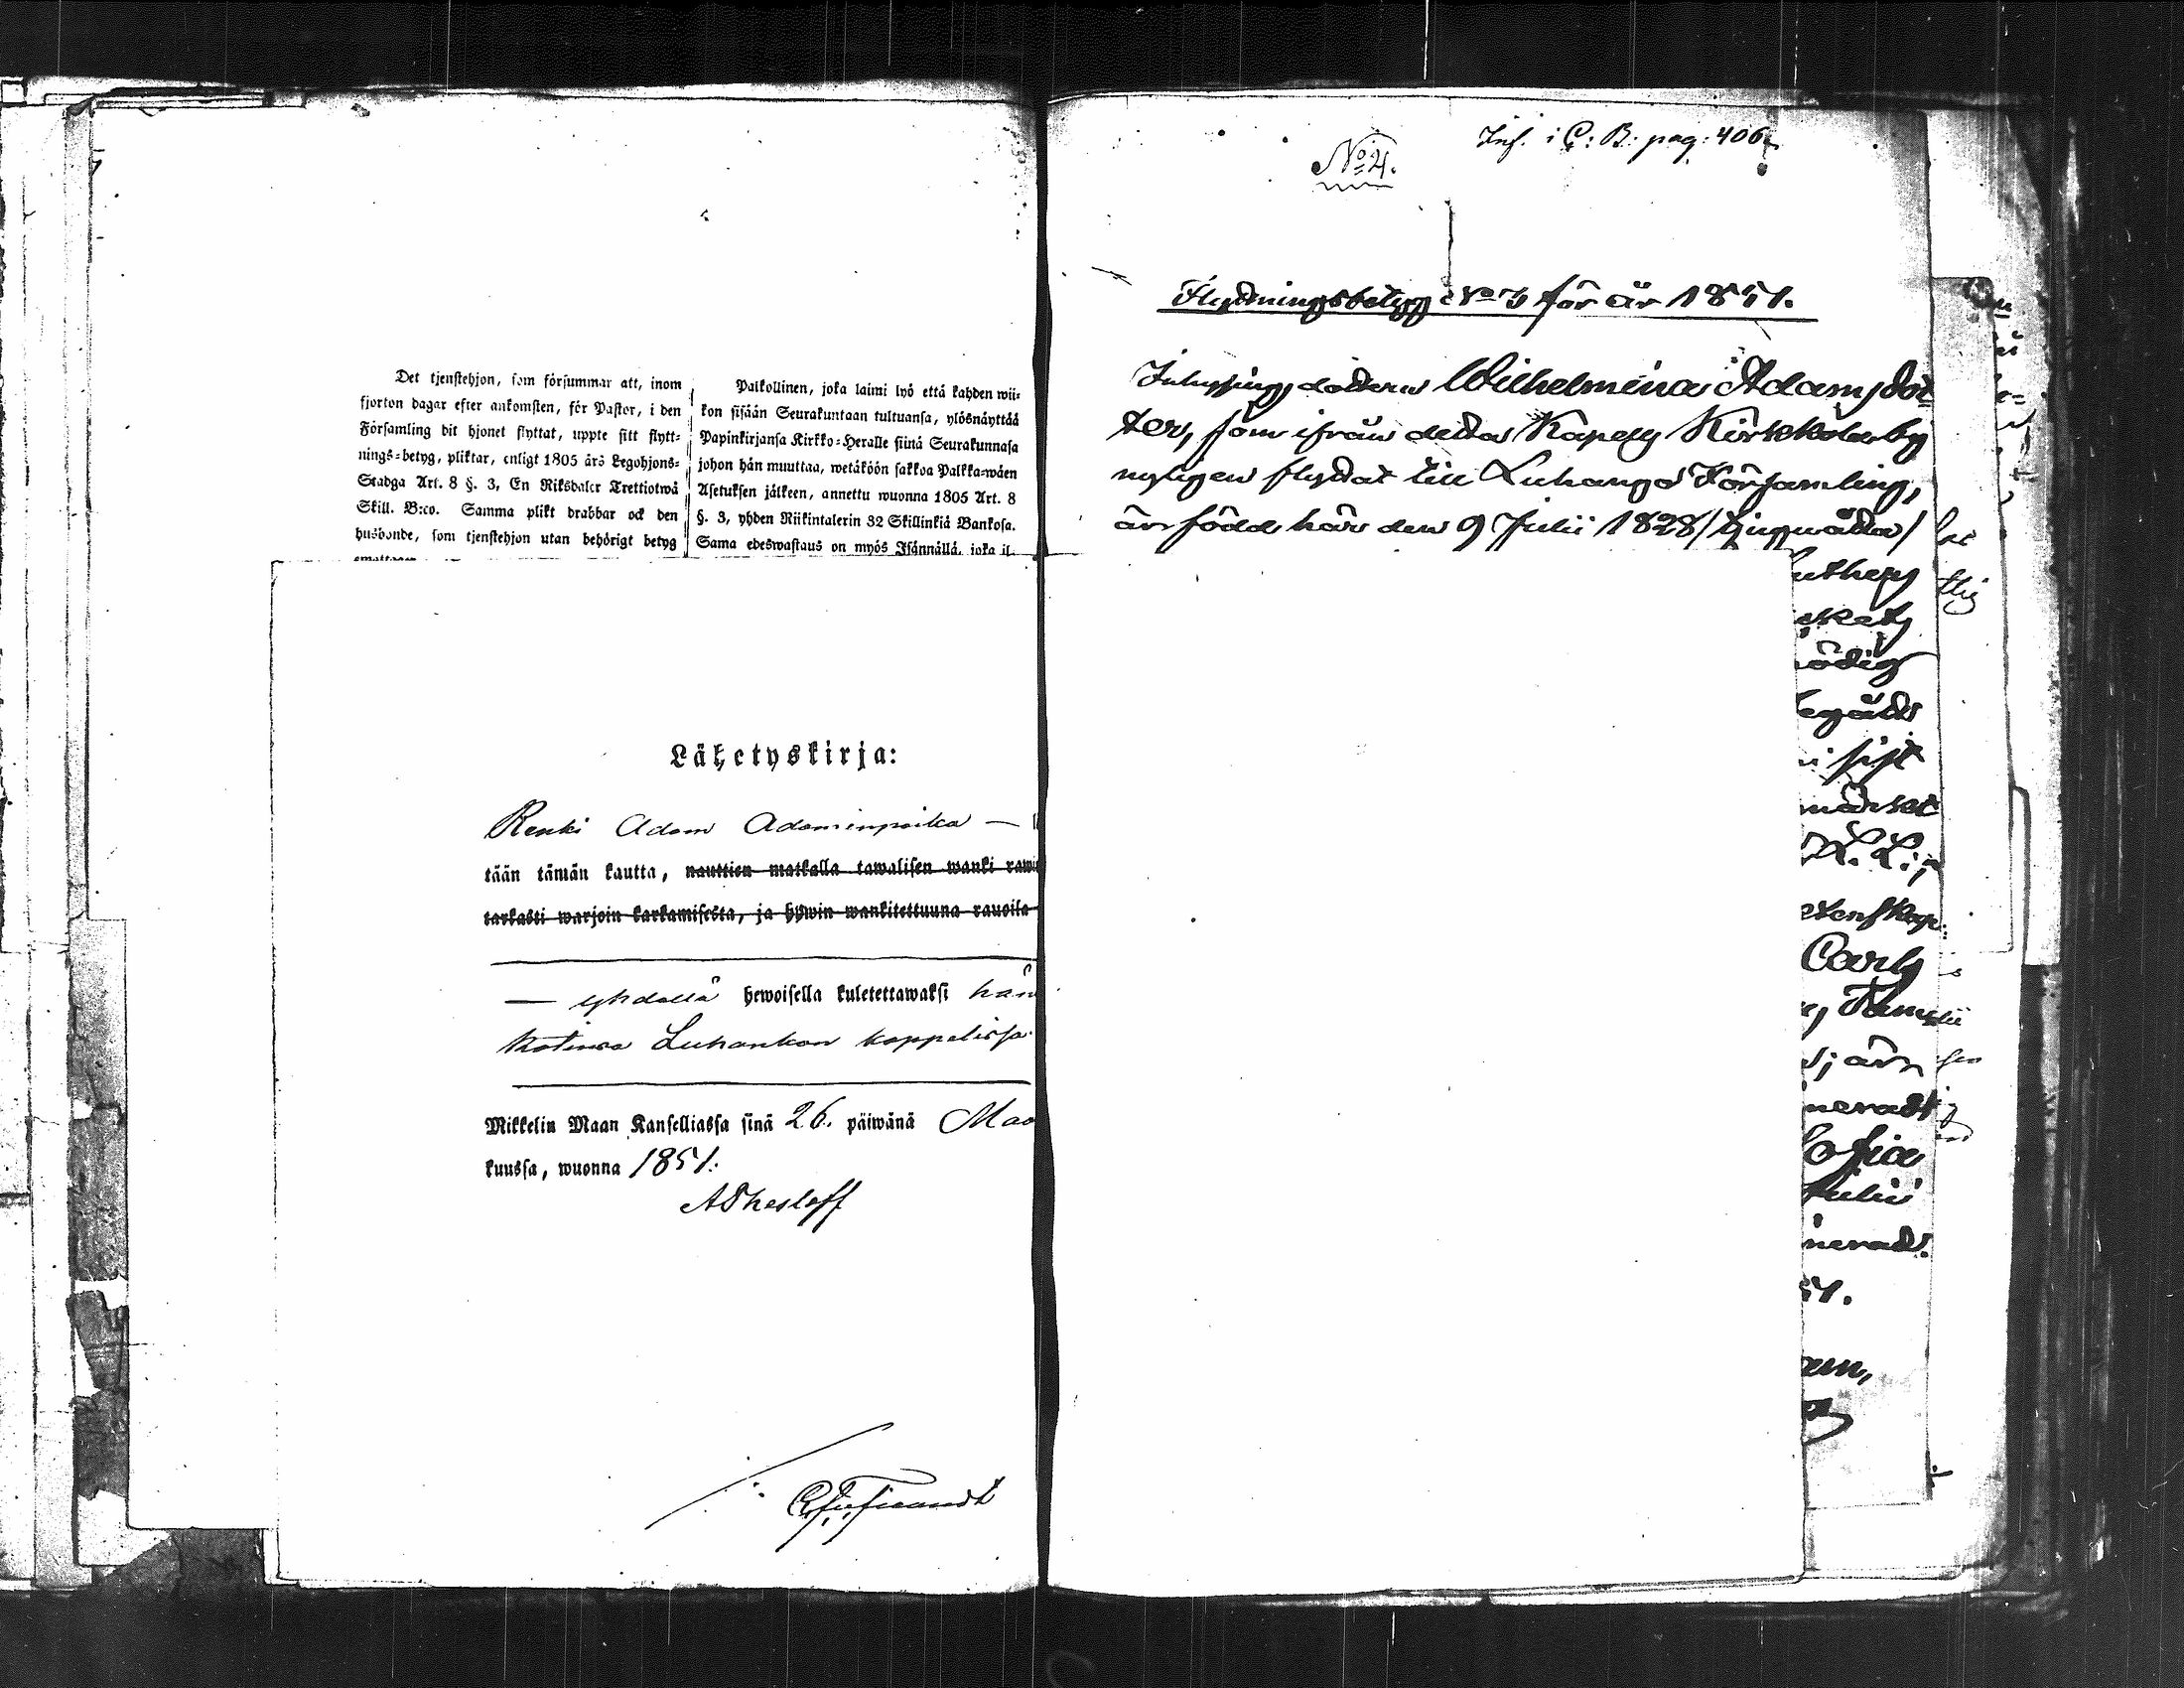 Det tjenstehjon, som försummar att, inom
fjorton dagar efter ankomsten, för Pastor, i den
Församling dit hjonet flyttat, uppte sitt flytt=
nings=betyg, pliktar, enligt 1805 års Legohjons=
Stadga Art. 8 §. 3, En Riksdaler Trettiotwå
Skill. B:co. Samma plikt drabbar ock den
husbonde, som tjenstehjon utan behörigt betyg
emottager
Palkollinen, joka laimi lyö että kahden wii=
kon sisään Seurakuntaan tultuansa, ylösnäyttää
Papinkirjansa Kirkko=Heralle siinä Seurakunnasa
johon hän muuttaa, wetäköön sakkoa Palkka=wäen
Asetuksen jälkeen, annettu wuonna 1805 Art. 8
§. 3, yhden Riikintalerin 32 Skillinkiä Bankosa.
Sama edeswastaus on myös Isännällä, joka il
Lähetyskirja:
Renki Adam Adaminpoika —
tään tämän kautta, nauttien matkalla tawalisen wanki rawi
tarkasti warjoin karkamisesta, ja hywin wankitettuuna rauoila
— yhdellä hewoisella kuletettawaksi hän
kotinsa Luhankan kappelissa
Mikkelin Maan Kanselliassa sinä 26. päiwänä Maa
kuussa, wuonna 1851.
AThesleff
No 4.
Inf. i C: B: pag: 406
Flyttningsbetyg No 3 för år 1851.
dottern Wilhelmina Adamsdot=
ter, som ifrån detta Kapells Kirkkola by
nyligen flyttat till Luhango Församling,
är född här den 9 Julii 1828
uthers
ödig
i sist
märket
etenskap
Carls
Famili
; är
nerad
ofia
Julii
nerad.
51.